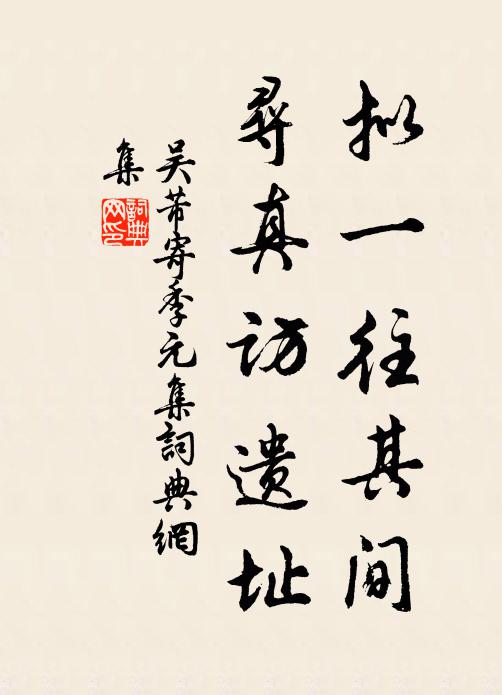 拟一往其间
寻真访遗址
吴芾寄季元集詞典網
集
詞典
网印